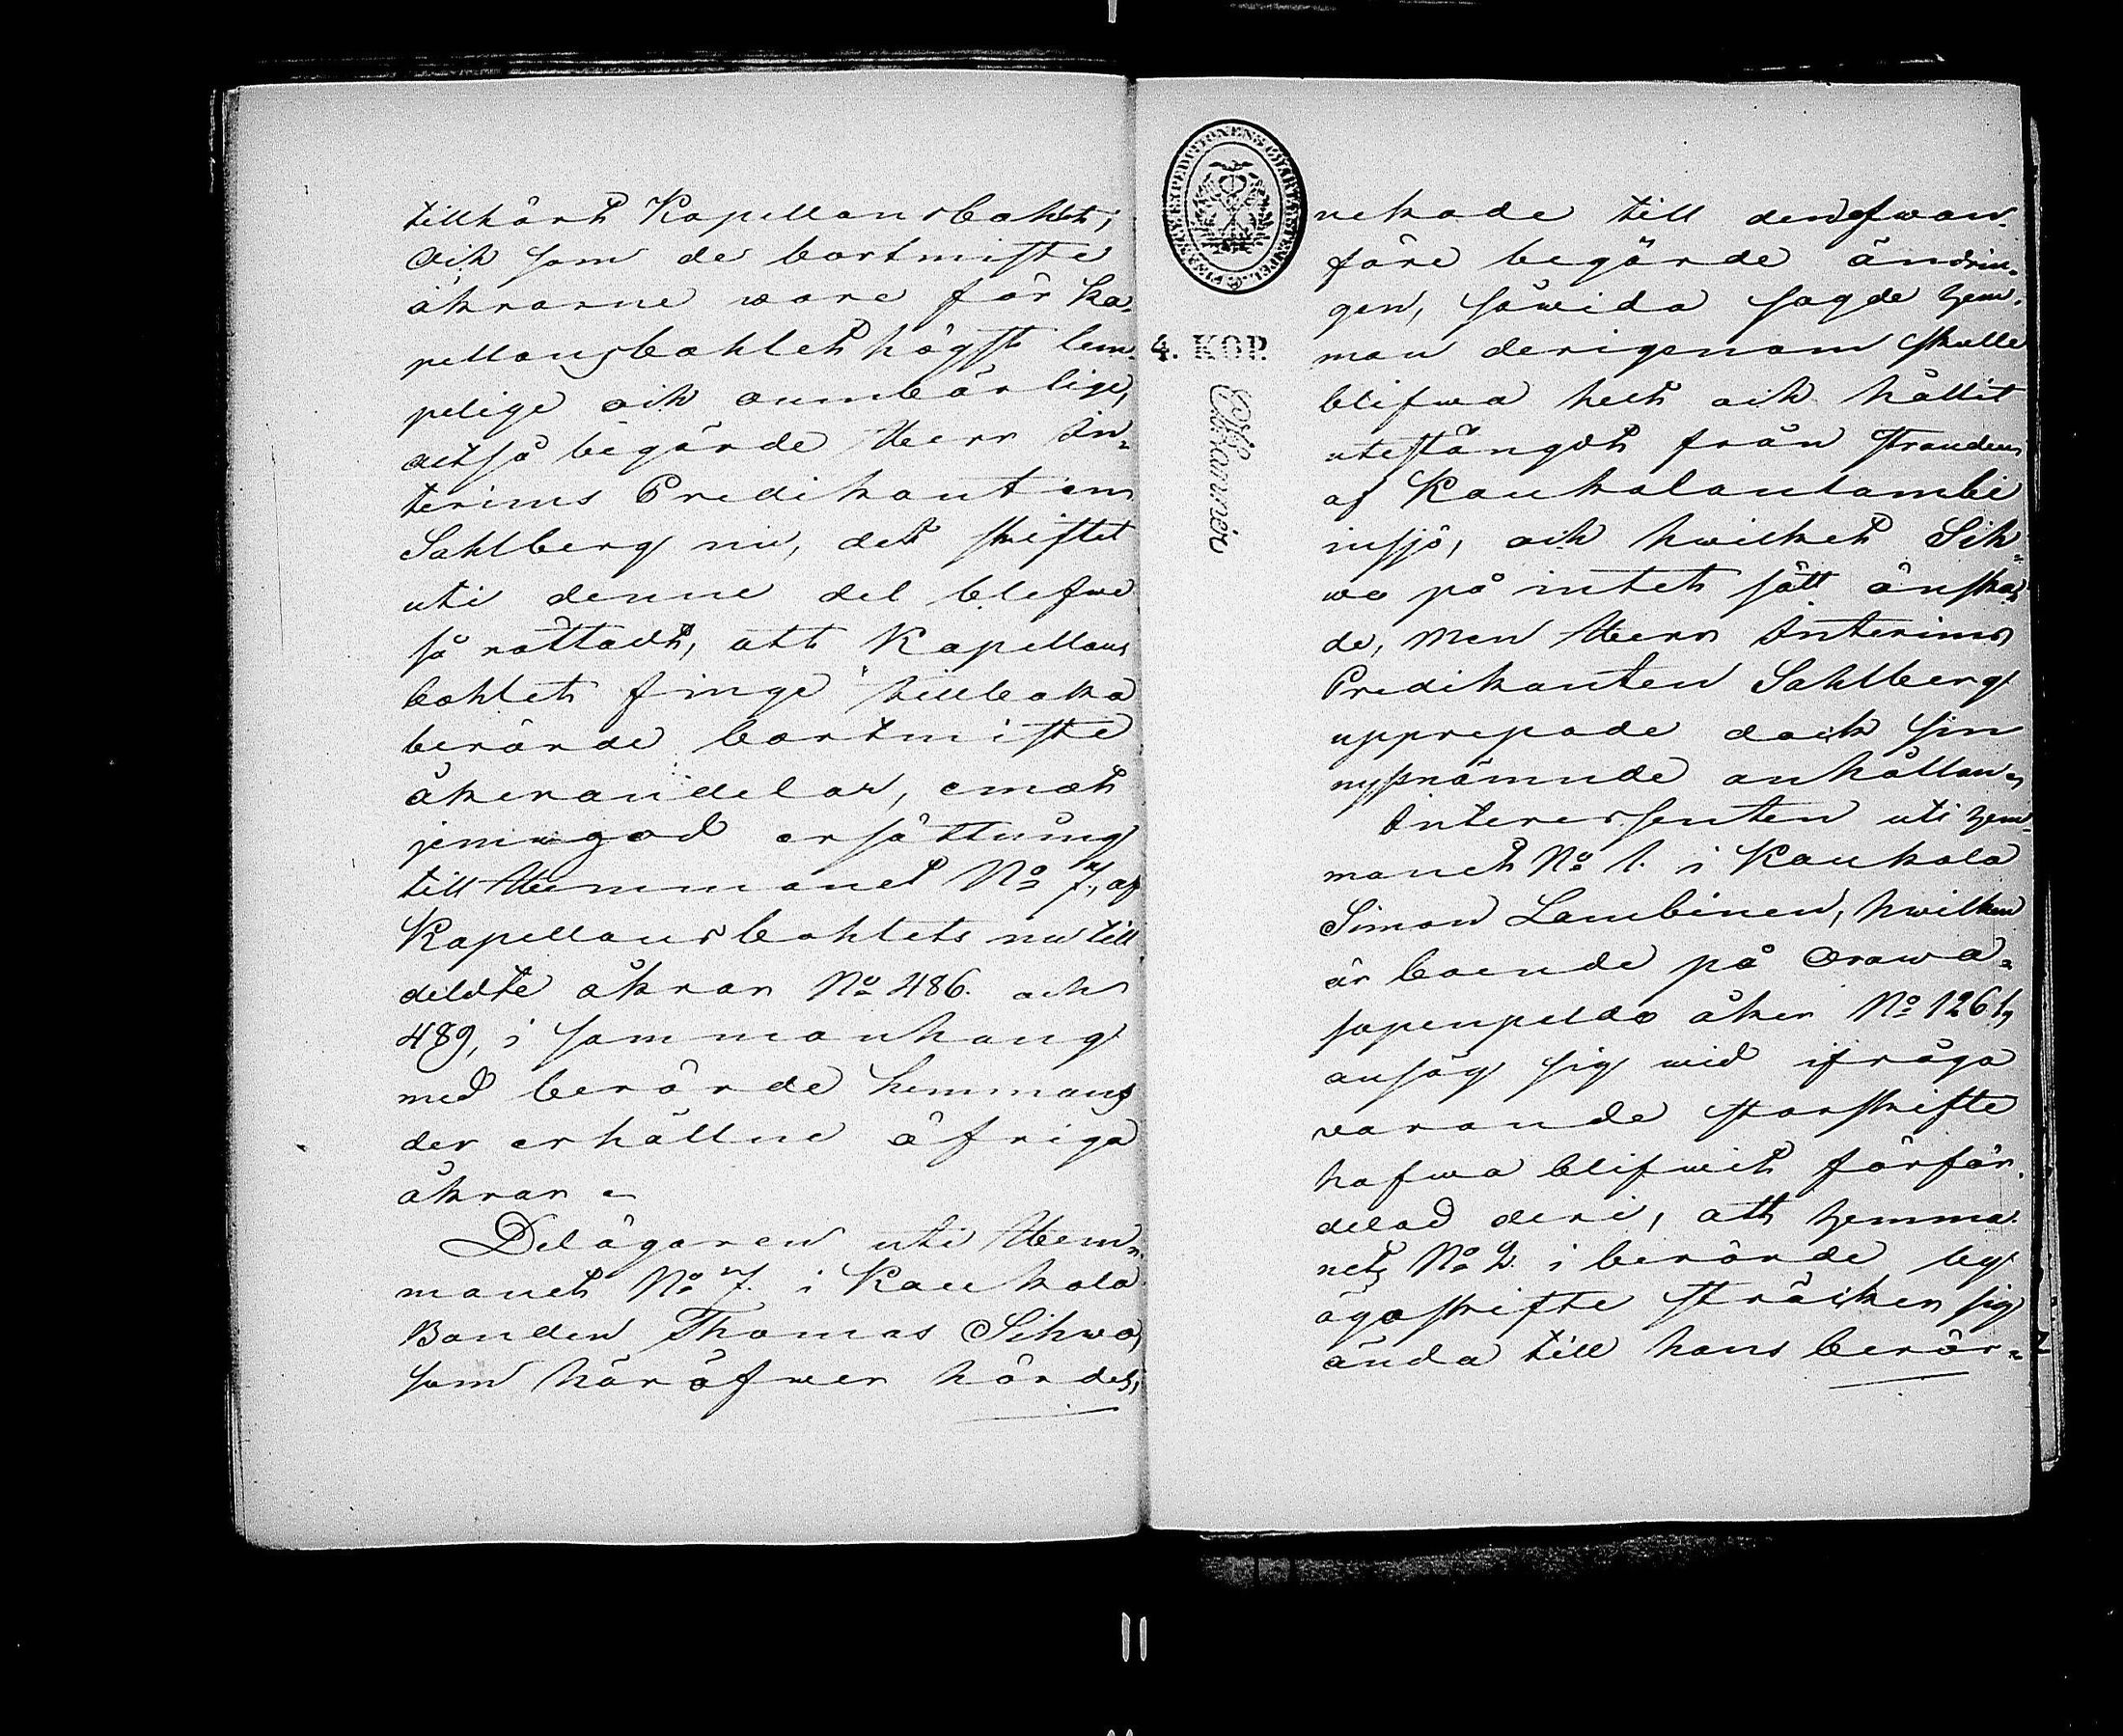 tillhördt Kapellansbohlet;
och som de bortmiste
åkrarne wore för ka-
pellansbohlet högst läm-
pelige och oumbärlige,
altså begärde Herr In-
terims Predikanten
Sahlberg nu, det skiftet
uti denne del blefwe
så rättadt, att Kapellans
bohlet finge tillbaka
berörde bortmiste
åkerandelar, emot
jemngod ersättning
till Hemmanet No 7, af
Kapellansbohlets nu till
deldte åkrar No 486. och
489, i sammanhang
med berörde hemmans
der erhållne öfriga
åkrar.
Delägaren uti Hem-
manet No 7. i Kaukola
Bonden Thomas Sihvo,
som häröfwer hördes,
4. KOP.
nekade till den ofwan-
före begärde ändrin-
gen, såwida sagde hem-
man derigenom skulle
blifwa helt och hållit
utestängdt från stranden
af Kaukolanlambi
insjö, och hwilket Sih-
wo på intet sätt önska-
de, men Herr Interims
Predikanten Sahlberg
upprepade dock sin
nyssnämnde anhållan.
Interessenten uti hem-
manet No 1. i Kaukola
Simon Lambinen, hwilken
är boende på Orawa-
sopenpeldo åker No 1261,
ansåg sig wid ifråga
varande storskifte
hafwa blifwit förför-
delad deri, att hemma-
nets No 2. i berörde by
ägoskifte sträcker sig
ända till hans berör-